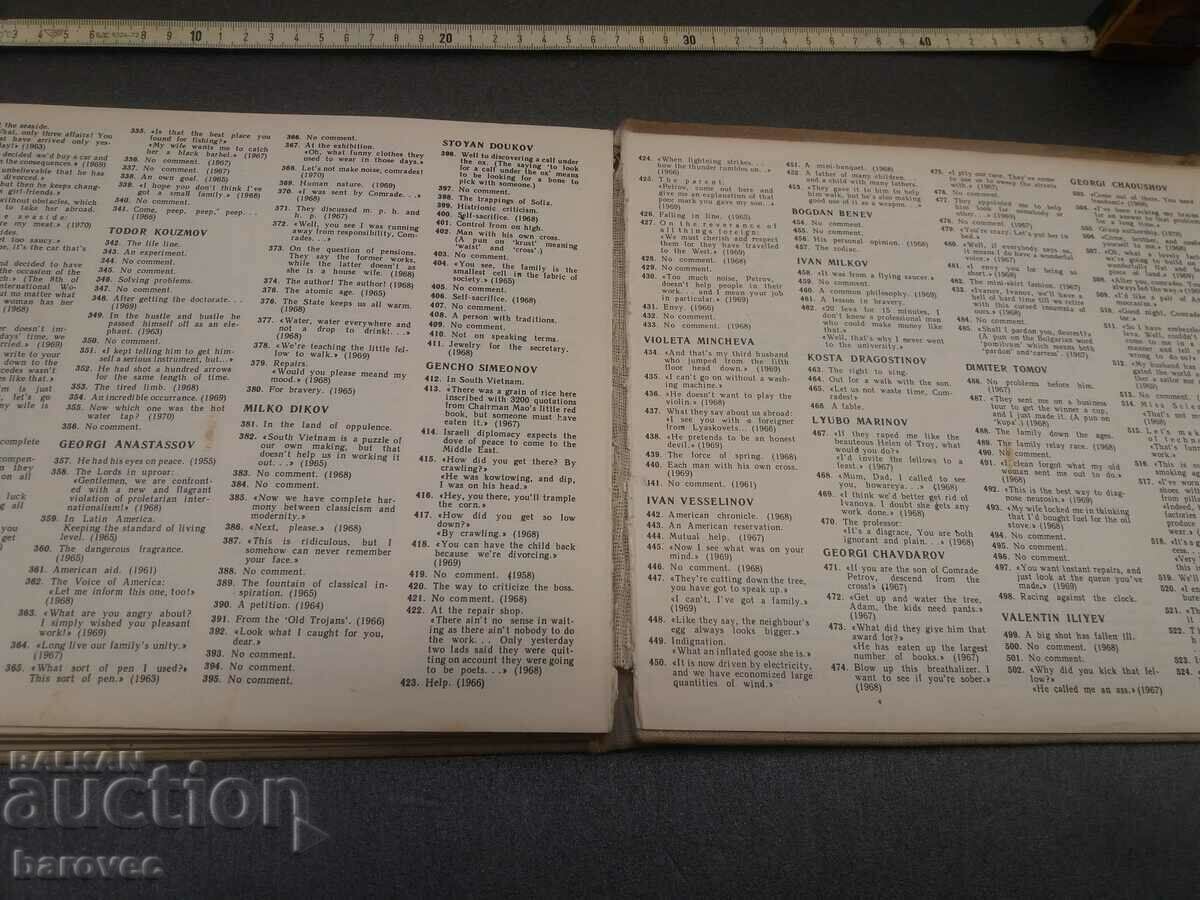 t the seaside.
What, only three affairs! You
must have arrived only yes-
day!» (1963)
decided we'd buy a car and
the consequences.» (1969)
unbelievable that he has
divorced.»
but then he keeps chang-
girl-friends.»
without obstacles, which
to take her abroad.
re my meat.» (1970)
e seaside:
ot too saucy.»
e, it's the car that's
and decided to have
the occasion of the
rch.» (The 8th of
ternational Wo-
ut no matter what
woman has her
(1968)
er doesn't im-
days' time, we
rried.» (1969)
write to your
down to the
cedes wasn't
es like that.»
m is just
t, let's go
my wife is
complete
compen-
n they
on all
luck
ing all
335. «Is that the best place you
found for fishing?»
«My wife wants me to catch
her a black barbel.» (1967)
336. No comment. (1967)
337. No comment. (1967)
338. An own goal. (1965)
339. «I hope you don't think I've
got a small family.» (1968)
340. No comment.
341. Come, peep, peep,' peep...
(1966)
TODOR KOUZMOV
342. The life line.
343. An experiment.
344. No comment.
345. No comment.
346. Solving problems.
347. No comment.
348. After getting the doctorate...
(1969)
349. In the hustle and bustle he
passed himself off as an ele-
phant. (1963)
350. No comment.
351. «I kept telling him to get himself
a serious instrument, but...»
352. He had shot a hundred arrows
for the same length of time.
353. The tired limb. (1968)
354. An incredible occurrance. (1969)
355. Now which one was the hot
water tap? (1970)
356. No comment.
GEORGI ANASTASSOV
357. He had his eyes on peace. (1955)
358. The Lords in uproar:
«Gentlemen, we are confronted
with a new and flagrant
violation of proletarian inter-
nationalism!» (1968)
359. In Latin America.
Keeping the standard of living
level. (1965)
360. The dangerous fragrance.
(1965)
361. American aid. (1961)
362. The Voice of America:
«Let me inform this one, too!»
(1968)
363. «What are you angry about?
I simply wished you pleasant
work!» (1969)
364. «Long live our family's unity.»
(1967)
365. «What sort of pen I used?»
This sort of pen.» (1963)
366. No comment.
367. At the exhibition.
«Oh, what funny clothes they
used to wear in those days.»
368. Let's not make noise, comrades!
(1970)
369. Human nature. (1969)
370. «I was sent by Comrade...»
(1967)
371. They discussed m. p. h. and
h. p. (1967)
372. «Well, you see I was running
away from responsibility, Com-
rades...»
373. On the question of pensions.
They say the former works,
while the latter doesn't as
she is a house wife. (1968)
374. The author! The author! (1968)
375. The atomic age. (1965)
376. The State keeps us all warm.
(1968)
377. «Water, water everywhere and
not a drop to drink!...»
(1968)
378. «We're teaching the little fel-
low to walk.» (1969)
379. Repairs.
«Would you please meand my
mood.» (1968)
380. For bravery. (1965)
MILKO DIKOV
381. In the land of oppulence.
382. «South Vietnam is a puzzle of
our own making, but that
doesn't help us in working it
out...» (1965)
383. No comment. (1968)
384. No comment.
385. «Now we have complete har-
mony between classicism and
modernity.»
386. «Next, please.» (1968)
387. «This is ridiculous, but I
somehow can never remember
your face.»
388. No comment.
389. The fountain of classical in-
spiration. (1965)
390. A petition. (1964)
391. From the 'Old Trojans'. (1966)
392. «Look what I caught for you,
dear.»
393. No comment.
394. No comment.
395. No comment.
STOYAN DOUKOV
396. Well to discovering a call under
the ox. (The saying 'to look
for a call under the ox' means
to be looking for a bone to
pick with someone.)
397. No comment.
398. The trappings of Sofia.
399. Histrionic criticism.
400. Self-sacrifice. (1968)
401. Control from on high.
402. Man with his own cross.
(A pun on 'krust' meaning
'waist' and 'cross'.)
403. No comment.
404. «You see, the family is the
smallest cell in the fabric of
society.» (1965)
405. No comment.
406. Self-sacrifice. (1968)
407. No comment.
408. A person with traditions.
409. No comment.
410. Not on speaking terms.
411. Jewelry for the secretary.
(1968)
GENCHO SIMEONOV
412. In South Vietnam.
413. «There was a grain of rice here
inscribed with 3200 quotations
from Chairman Mao's little red
book, but someone must have
eaten it.» (1967)
414. Israeli diplomacy expects the
dove of peace to come to the
Middle East.
415. «How did you get there? By
crawling?»
«He was kowtowing, and dip,
I was on his head.»
416. «Hey, you there, you'll trample
the corn.»
417. «How did you get so low
down?»
«By crawling.» (1968)
418. «You can have the child back
because we're divorcing.»
(1969)
419. No comment. (1958)
420. The way to criticize the boss.
421. No comment. (1968)
422. At the repair shop.
«There ain't no sense in wait-
ing as there ain't nobody to do
the work... Only yesterday
two lads said they were quit-
ting on account they were going
to be poets...» (1968)
423. Help. (1966)
424. «When lightning strikes...
how the thunder rumbles on...»
(1966)
425. The parent.
«Petrov, come out here and
give me an explanation of that
poor mark you gave my son.»
(1969)
426. Falling in line. (1965)
427. On the reverance of
all things foreign:
«We must cherish and respect
them for they have travelled
to the West.» (1969)
428. No comment.
429. No comment.
430. «Too much noise, Petrov,
doesn't help people in their
work... and I mean your job
in particular.» (1969)
431. Envy. (1966)
432. No comment.
433. No comment. (1968)
VIOLETA MINCHEVA
434. «And that's my third husband
who jumped from the fifth
floor head down.» (1969)
435. «I can't go on without a wash-
ing machine.»
436. «He doesn't want to play the
violin.» (1968)
437. What they say about us abroad:
«I see you with a foreigner
from Lyaskovets...» (1969)
438. «He pretends to be an honest
devil.» (1969)
439. The force of spring. (1968)
440. Each man with his own cross.
(1969)
141. No comment. (1961)
IVAN VESSELINOV
442. American chronicle. (1968)
443. An American reservation.
444. Mutual help. (1967)
445. «Now I see what was on your
mind.» (1969)
446. No comment. (1968)
447. «They're cutting down the tree,
you have got to speak up.»
«I can't, I've got a family.»
(1969)
448. «Like they say, the neighbour's
egg always looks bigger.»
449. Indignation.
«What an inflated goose she is.»
450. «It is now driven by electricity,
and we have economized large
quantities of wind.» (1968)
451. A mini-banquet. (1968)
452. A father of many children,
and a child with many fathers.
453. «They gave it to him to help
him walk, but he's also making
good use of it as a weapon...»
BOGDAN BENEV
454. No comment.
455. No comment.
456. His personal opinion. (1968)
457. The zodiac.
IVAN MILKOV
458. «It was from a flying saucer.»
459. No comment.
460. A common philosophy. (1969)
461. A lesson in bravery.
462. «20 leva for 15 minutes, I
don't know a professional man
who could make money like
that.»
«Well, that's why I never went
to the university.» (1969)
KOSTA DRAGOSTINOV
463. The right to king.
464. Out for a walk with the son.
465. «Let us not waste time.»
(1968)
466. A table.
LYUBO MARINOV
467. «If they raped me like the
beauteous Helen of Troy, what
would you do?»
«I'd invite the fellows to a
feast.» (1967)
468. «Mum, Dad, I called to see
you, howareya...» (1968)
469. «I think we'd better get rid of
Ivanova. I doubt she gets any
work done.» (1968)
470. The professor:
«It's a disgrace, You are both
ignorant and plain...» (1968)
GEORGI CHAVDAROV
471. «If you are the son of Comrade
Petrov, descend from the
cross!» (1967)
472. «Get up and water the tree,
Adam, the kids need pants.»
(1967)
473. «What did they give him that
award for?»
«He has eaten up the largest
number of books.» (1967)
474. Blow up this breathalizer. I
want to see if you're sober.»
(1968)
475. «I pity our race. They've come
to use us to sweep the streets
with.» (1967)
476. No comment.
477. «They appointed me to help
him look for somebody or
other...» (1969)
478. No comment. (1967)
479. «You're crazy! Let's put her in
bed.»
480. «Well, if everybody says so,
it means I do have a wonderful
voice.» (1967)
481. «I envy you for being so
short.» (1967)
482. The mini-skirt fashion. (1967)
483. «Ivanov, Ivanov, we'll have a
hell of hard time till we retire
with this cursed insomnia of
ours.» (1968)
484. No comment.
485. «Shall I pardon you, dearest?»
(A pun on the Bulgarian word
'pomilvam' which means both
'pardon' and 'caress'. (1967)
DIMITER TOMOV
486. No problems before him.
(1967)
487. «They sent me on a business
tour to get the winner a cup,
and I just made it. (A pun on
'kupa'.) (1968)
488. The family down the ages.
489. The family relay race. (1968)
490. No comment.
491. «I clean forgot what my old
woman sent me out to do.»
(1968)
492. «This is the best way to diag-
nose neurosis.» (1969)
493. «My wife locked me in thinking
that I'd bought fuel for the oil
stove.» (1968)
494. No comment.
495. No comment.
496. No comment.
497. «You want instant repairs, and
just look at the queue you've
made.» (1969)
498. Racing against the clock.
VALENTIN ILIYEV
499. A big shot has fallen ill.
500. No comment. (1968)
501. No comment.
502. «Why did you kick that fel-
low?»
«He called me an ass.» (1967)
GEORGI CHAOUSHOV
505. Group authorship. (1970)
BALKAN
auction
barovec